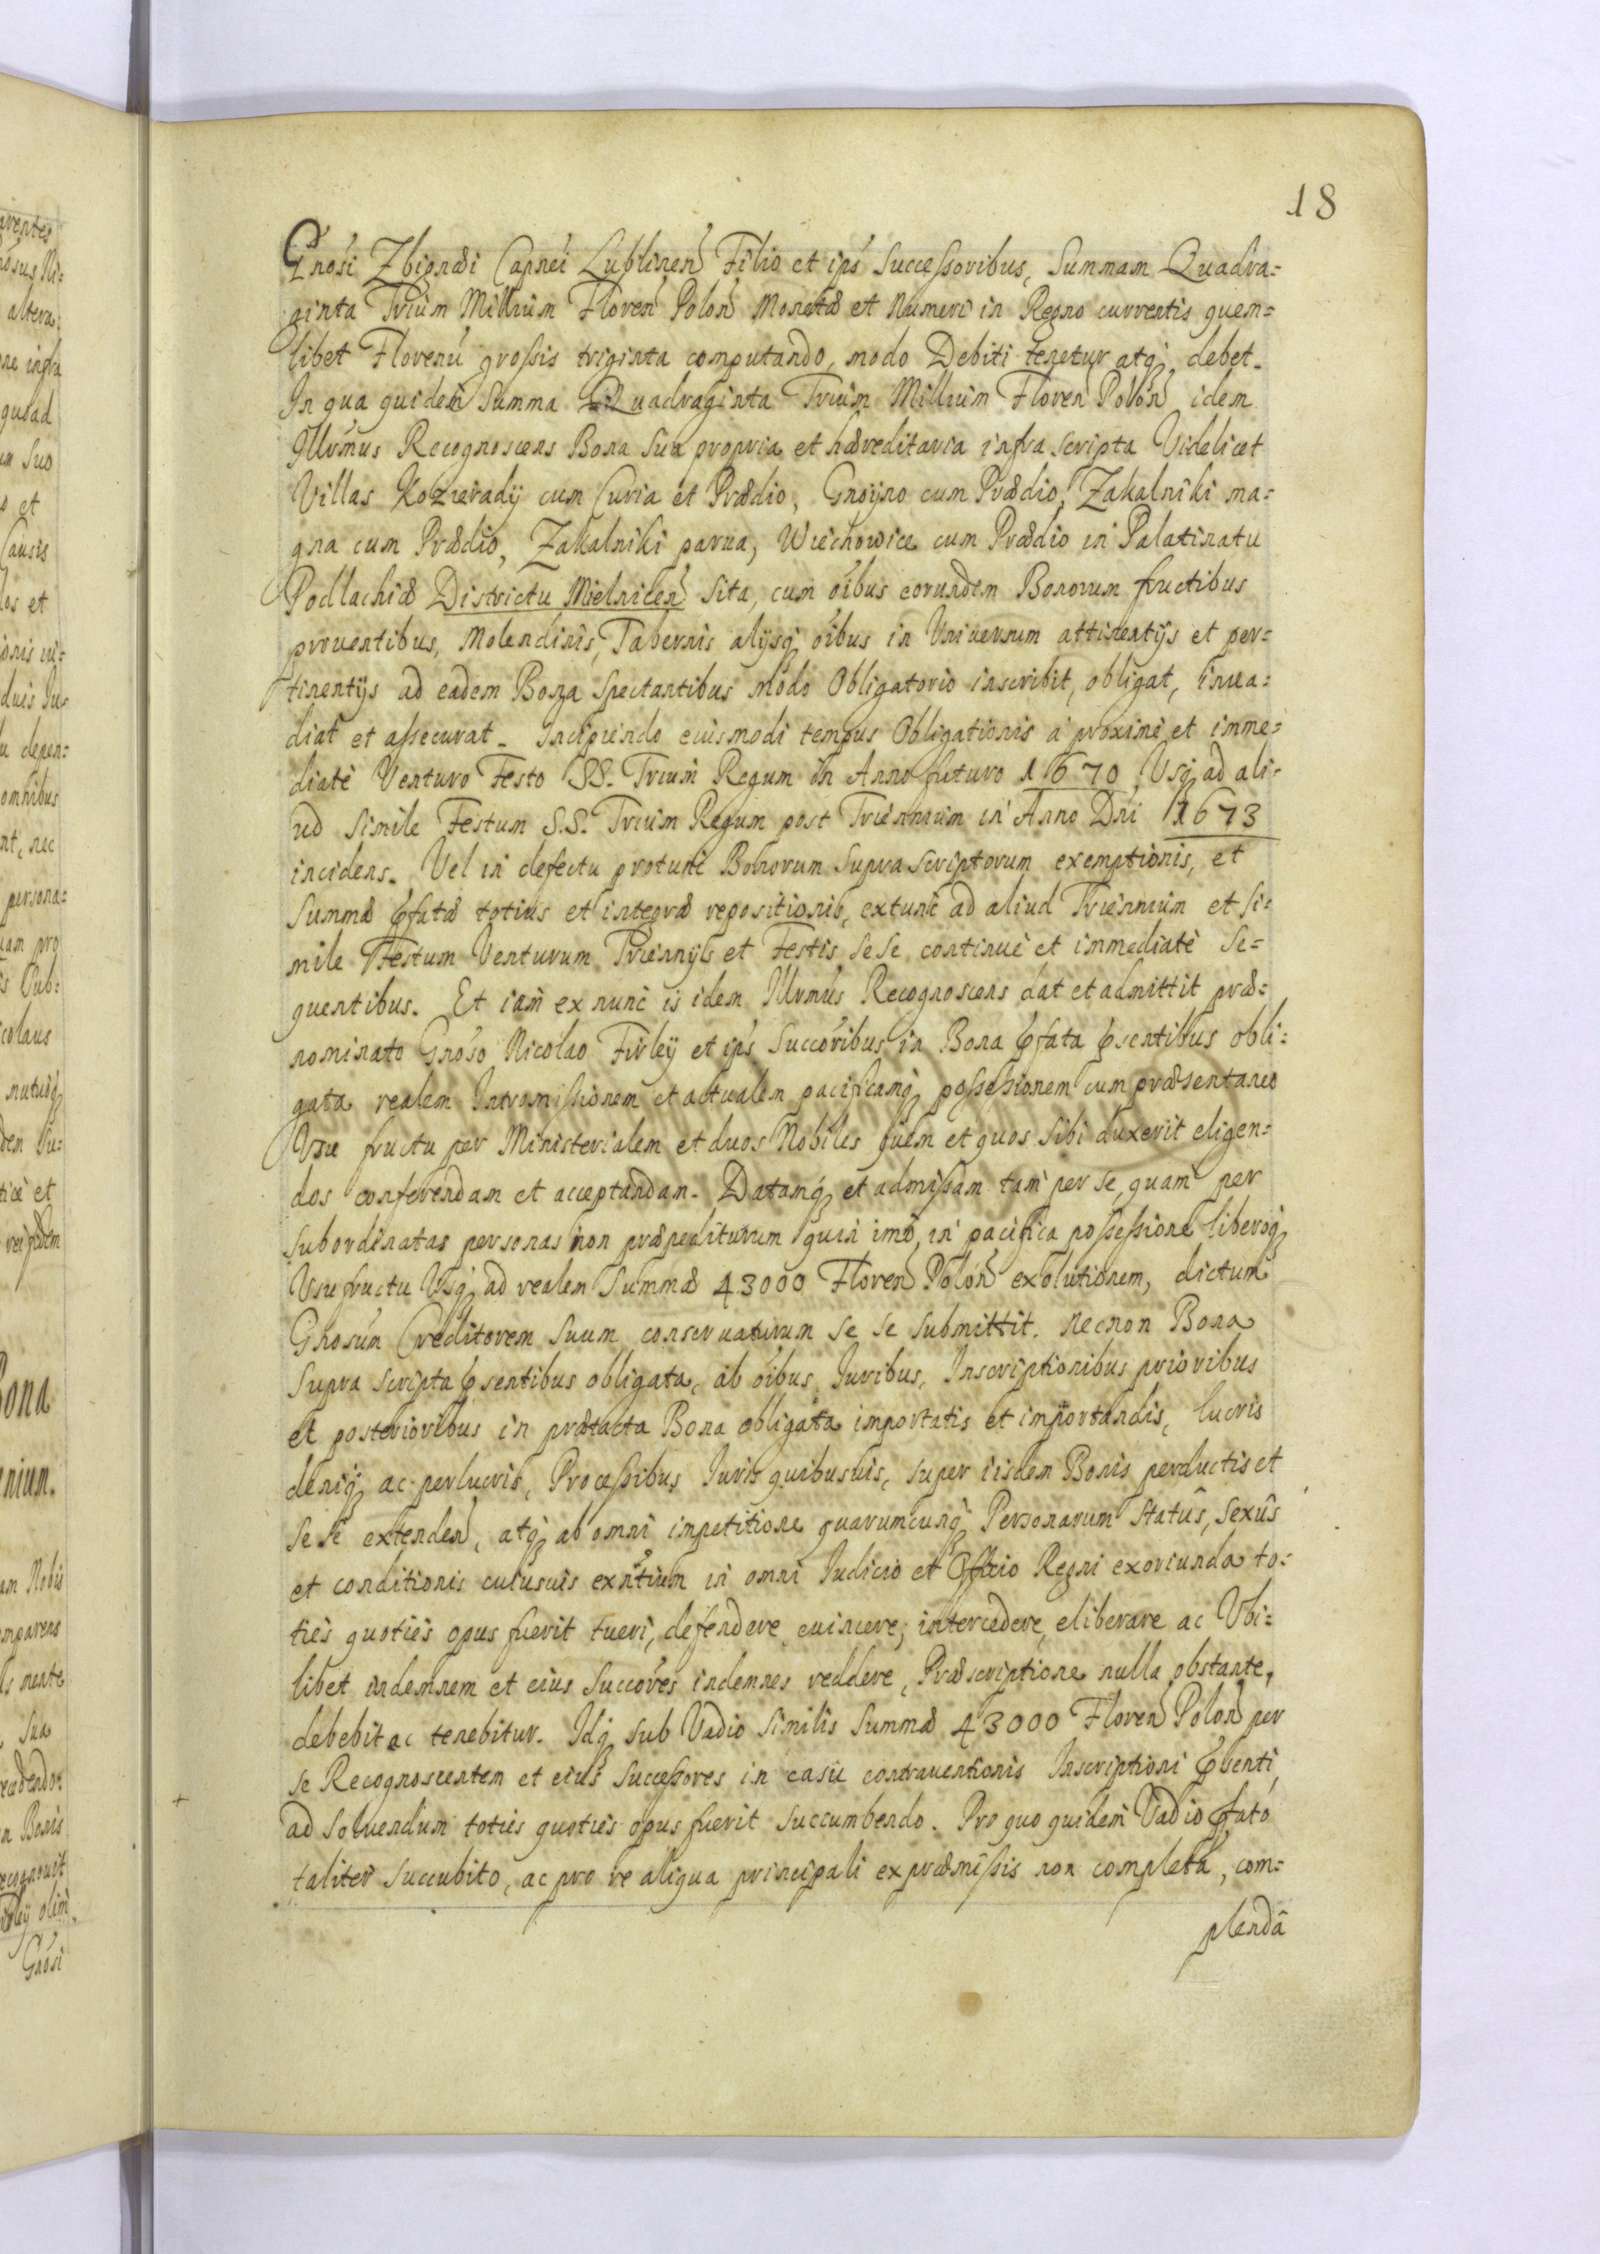 18
Gnosi Zbignæi Capnei Lublinen Filio et ips Successoribus, Summam Quadra=
ginta Trium Millium Floren Polon Monetæ et Numeri in Regno currentis quem=
libet Florenu grossis triginta computando, modo Debiti tenetur atq debet.
In qua quidem Summa Quadraginta Trium Millium Floren Polon idem
Illrmus Recognoscens Bona Sua propria et hæreditaria infra scripta Videlicet
Villas Kozieradÿ cum Curia et Prædio, Gnoÿno cum Prædio, Zakalniki ma=
gna cum Prædio, Zakalniki parua, Wiechowice cum Prædio in Palatinatu
Podlachiæ Districtu Mielnicen Sita, cum oibus eorundem Bonorum fructibus
prouentibus, Molendinis, Tabernis alijsq oibus in Vniuersum attinentijs et per=
tinentijs ad eadem Bona spectantibus modo Obligatorio inscribit, obligat, inua=
diat et assecurat. Incipiendo eiusmodi tempus Obligationis a proxime et imme=
diate Venturo Festo SS. Trium Regum in Anno futuro 1670, Usq ad ali=
ud simile Festum S.S. Trium Regum post Triennium in Anno Dni 1673
incidens. Vel in defectu protunc Bonorum supra scriptorum exemptionis, et
Summæ pfatæ totius et integræ repositionis, extunc ad aliud Triennium et si=
mile Festum Venturum Triennijs et Festis sese continue et immediate se=
quentibus. Et iam ex nunc is idem Illrmus Recognoscens dat et admittit præ=
nominato Gnoso Nicolao Firleÿ et ips Succoribus in Bona pfata psentibus obli=
gata realem Intromissionem et actualem pacificamq possessionem cum præsentaneo
Usu fructu per Ministerialem et duos Nobiles quem et quos sibi duxerit eligen=
dos conferendam et acceptandam. Datamq et admissam tam per se, quam per
subordinatas personas non præpediturum quin imo, in pacifica possessione liberoq
Usufructu Usq ad realem Summæ 43000 Floren Polon exolutionem, dictum
Gnosum Creditorem Suum conseruaturum se se submittit. Necnon Bona
supra scripta psentibus obligata, ab oibus Iuribus, Inscriptionibus prioribus
et posterioribus in prætacta Bona obligata importatis et importandis, lucris
deniq ac perlucris, Processibus Iuris quibusuis, super iisdem Bonis perductis et
se se extenden, atq ab omni impetitione quarumcunq Personarum statûs, sexûs
et conditionis cuiusuis exntium in omni Iudicio et Officio Regni exoriunda to=
ties quoties opus fuerit tueri, defendere euincere, intercedere, eliberare ac Vbi=
libet indemnem et eius Succores indemnes reddere, Præscriptione nulla obstante,
debebit ac tenebitur. Idq sub Vadio similis Summæ 43000 Floren Polon per
se Recognoscentem et eius Successores in casu contrauentionis Inscriptioni psenti,
ad Soluendum toties quoties opus fuerit succumbendo. Pro quo quidem Vadio pfato
taliter succubito, ac pro re aliqua principali ex præmissis non completa, com=
plendâ